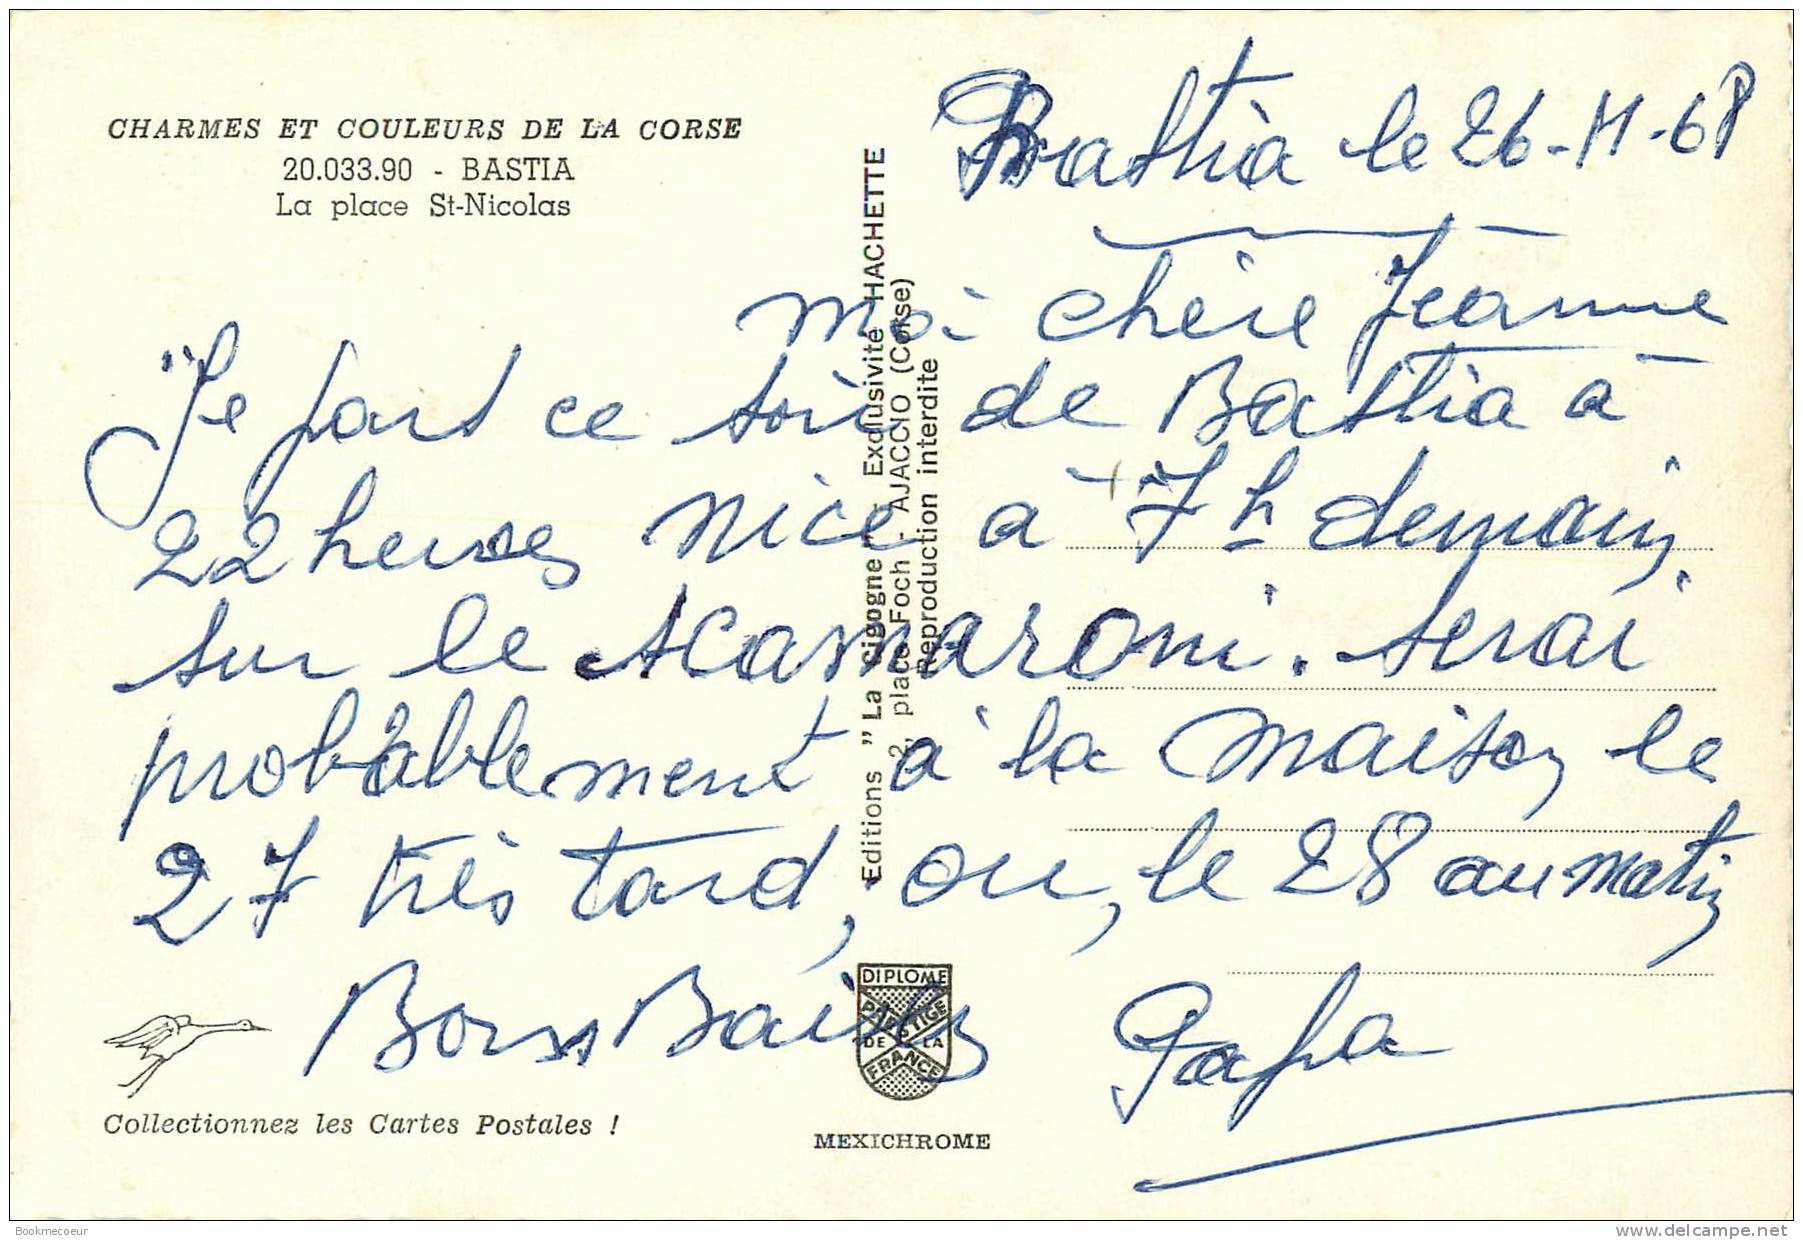 CHARMES ET COULEURS DE LA CORSE
20.033.90 - BASTIA
La place St-Nicolas
Bastia le 26-11-68
Ma chère Jeanne
Je pars ce soir de Bastia à
22 heures Nice à 7h demain
sur le Scamaroni. Serai
probablement à la maison le
27 très tard, ou, le 28 au matin
Bons Baisers
Papa
Editions "La Cigogne" Exclusivité HACHETTE
2, place Foch - AJACCIO (Corse)
Reproduction interdite
DIPLOME
PRESTIGE
DE LA
FRANCE
Collectionnez les Cartes Postales !
MEXICHROME
Bookmecoeur
delcampe.net